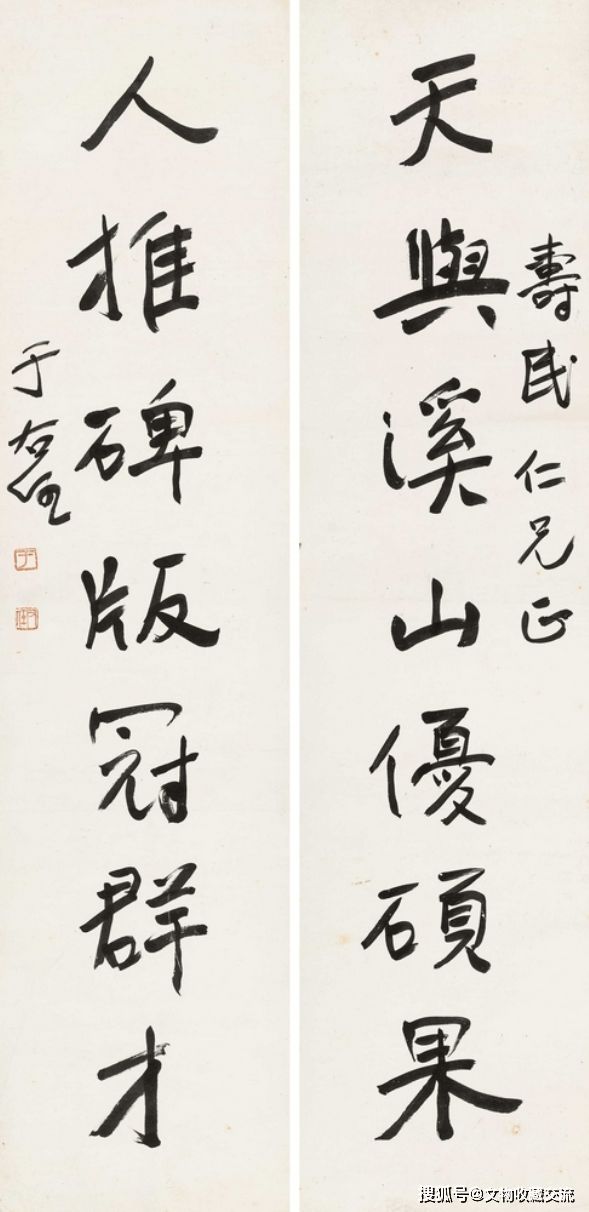 天與溪山優碩果
壽民仁兄正
人推碑版冠群才
于右任
搜狐号@文物收藏交流